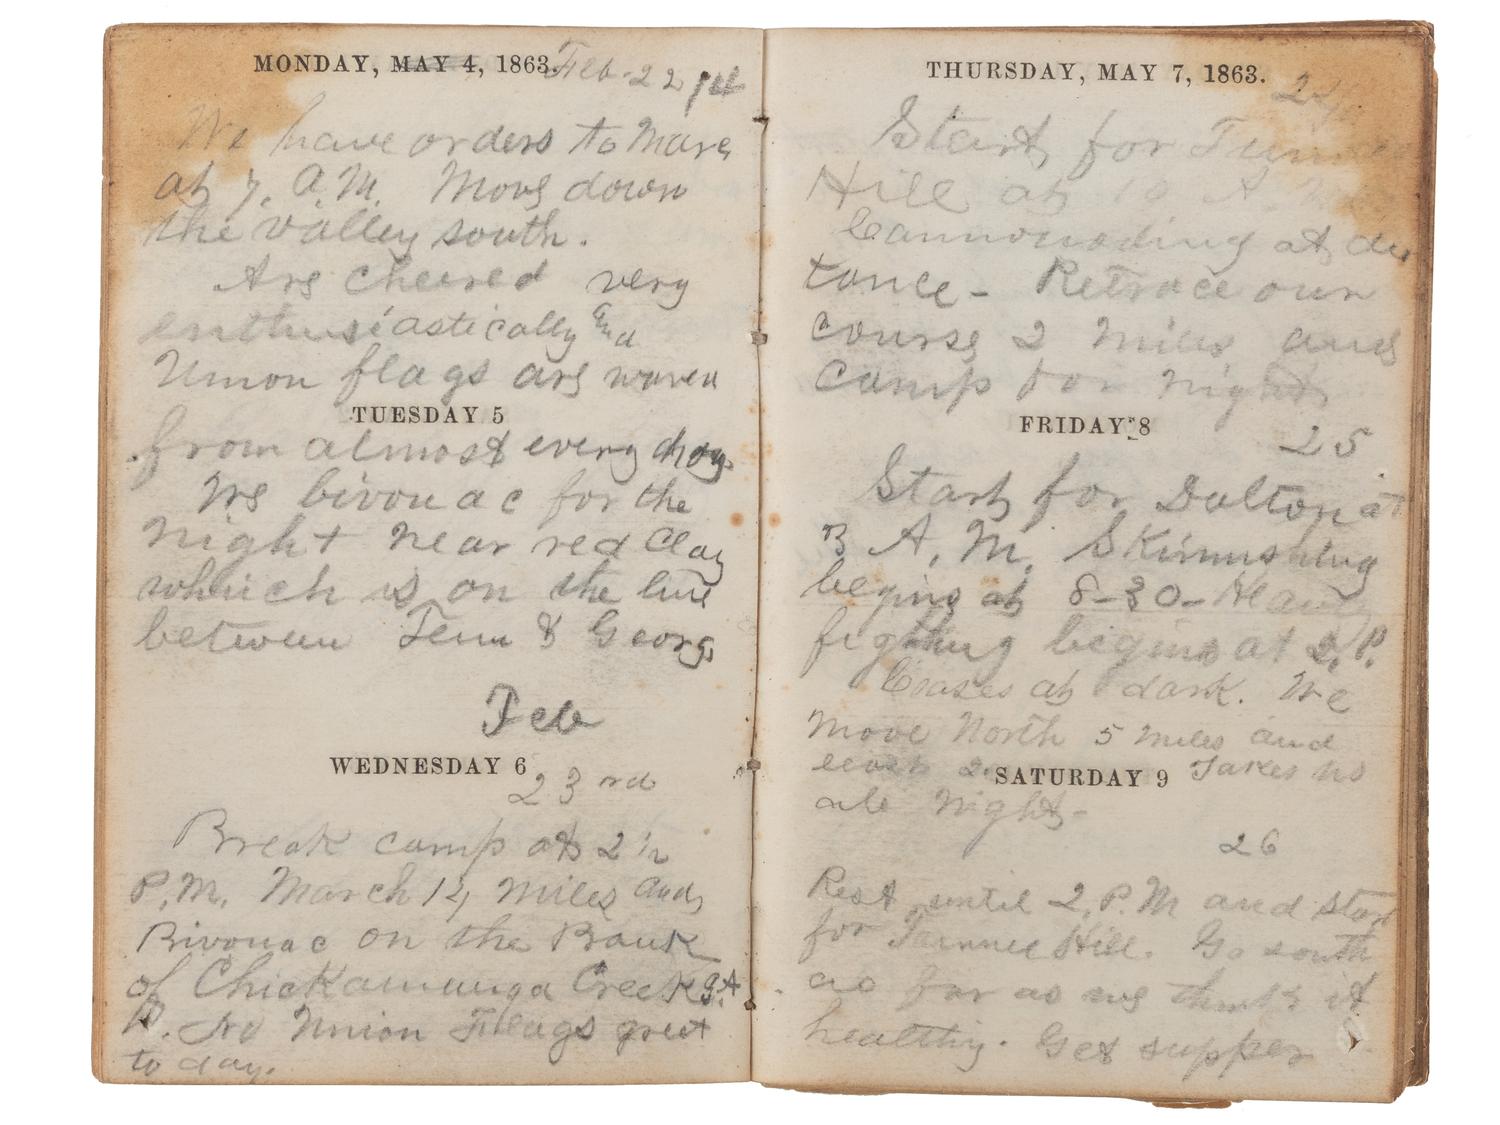 MONDAY, MAY 4, 1863. Feb. 22
We have orders to Move
at 7. A.M. Move down
the valley south.
Are cheered very
enthusiastically and
Union flags are waved
TUESDAY 5
from almost every
We bivouac for the
Night near red Clay
which is on the line
between Tenn & Georg
Feb
WEDNESDAY 6
23rd
Break camp at 2 1/2
P.M. March 14 miles and
Bivouac on the Bank
of Chickamauga Creek
No Union Fllags greet
to day.
THURSDAY, MAY 7, 1863.
24
Start for Tunnel
Hill at 10 A. M.
Cannonading at dis
tance - Retrace our
course 2 Miles and
camp for night
FRIDAY 8
25
Start for Dalton at
3 A. M. Skirmishing
begins at 8-30 - Heavy
fighting begins at 2, P.
Ceases at dark. We
Move North 5 miles and
Takes us
SATURDAY 9
all Night -
26
Rest until 2, P. M and start
for Tunnel Hill. Go south
as far as we think it
healthy. Get supper